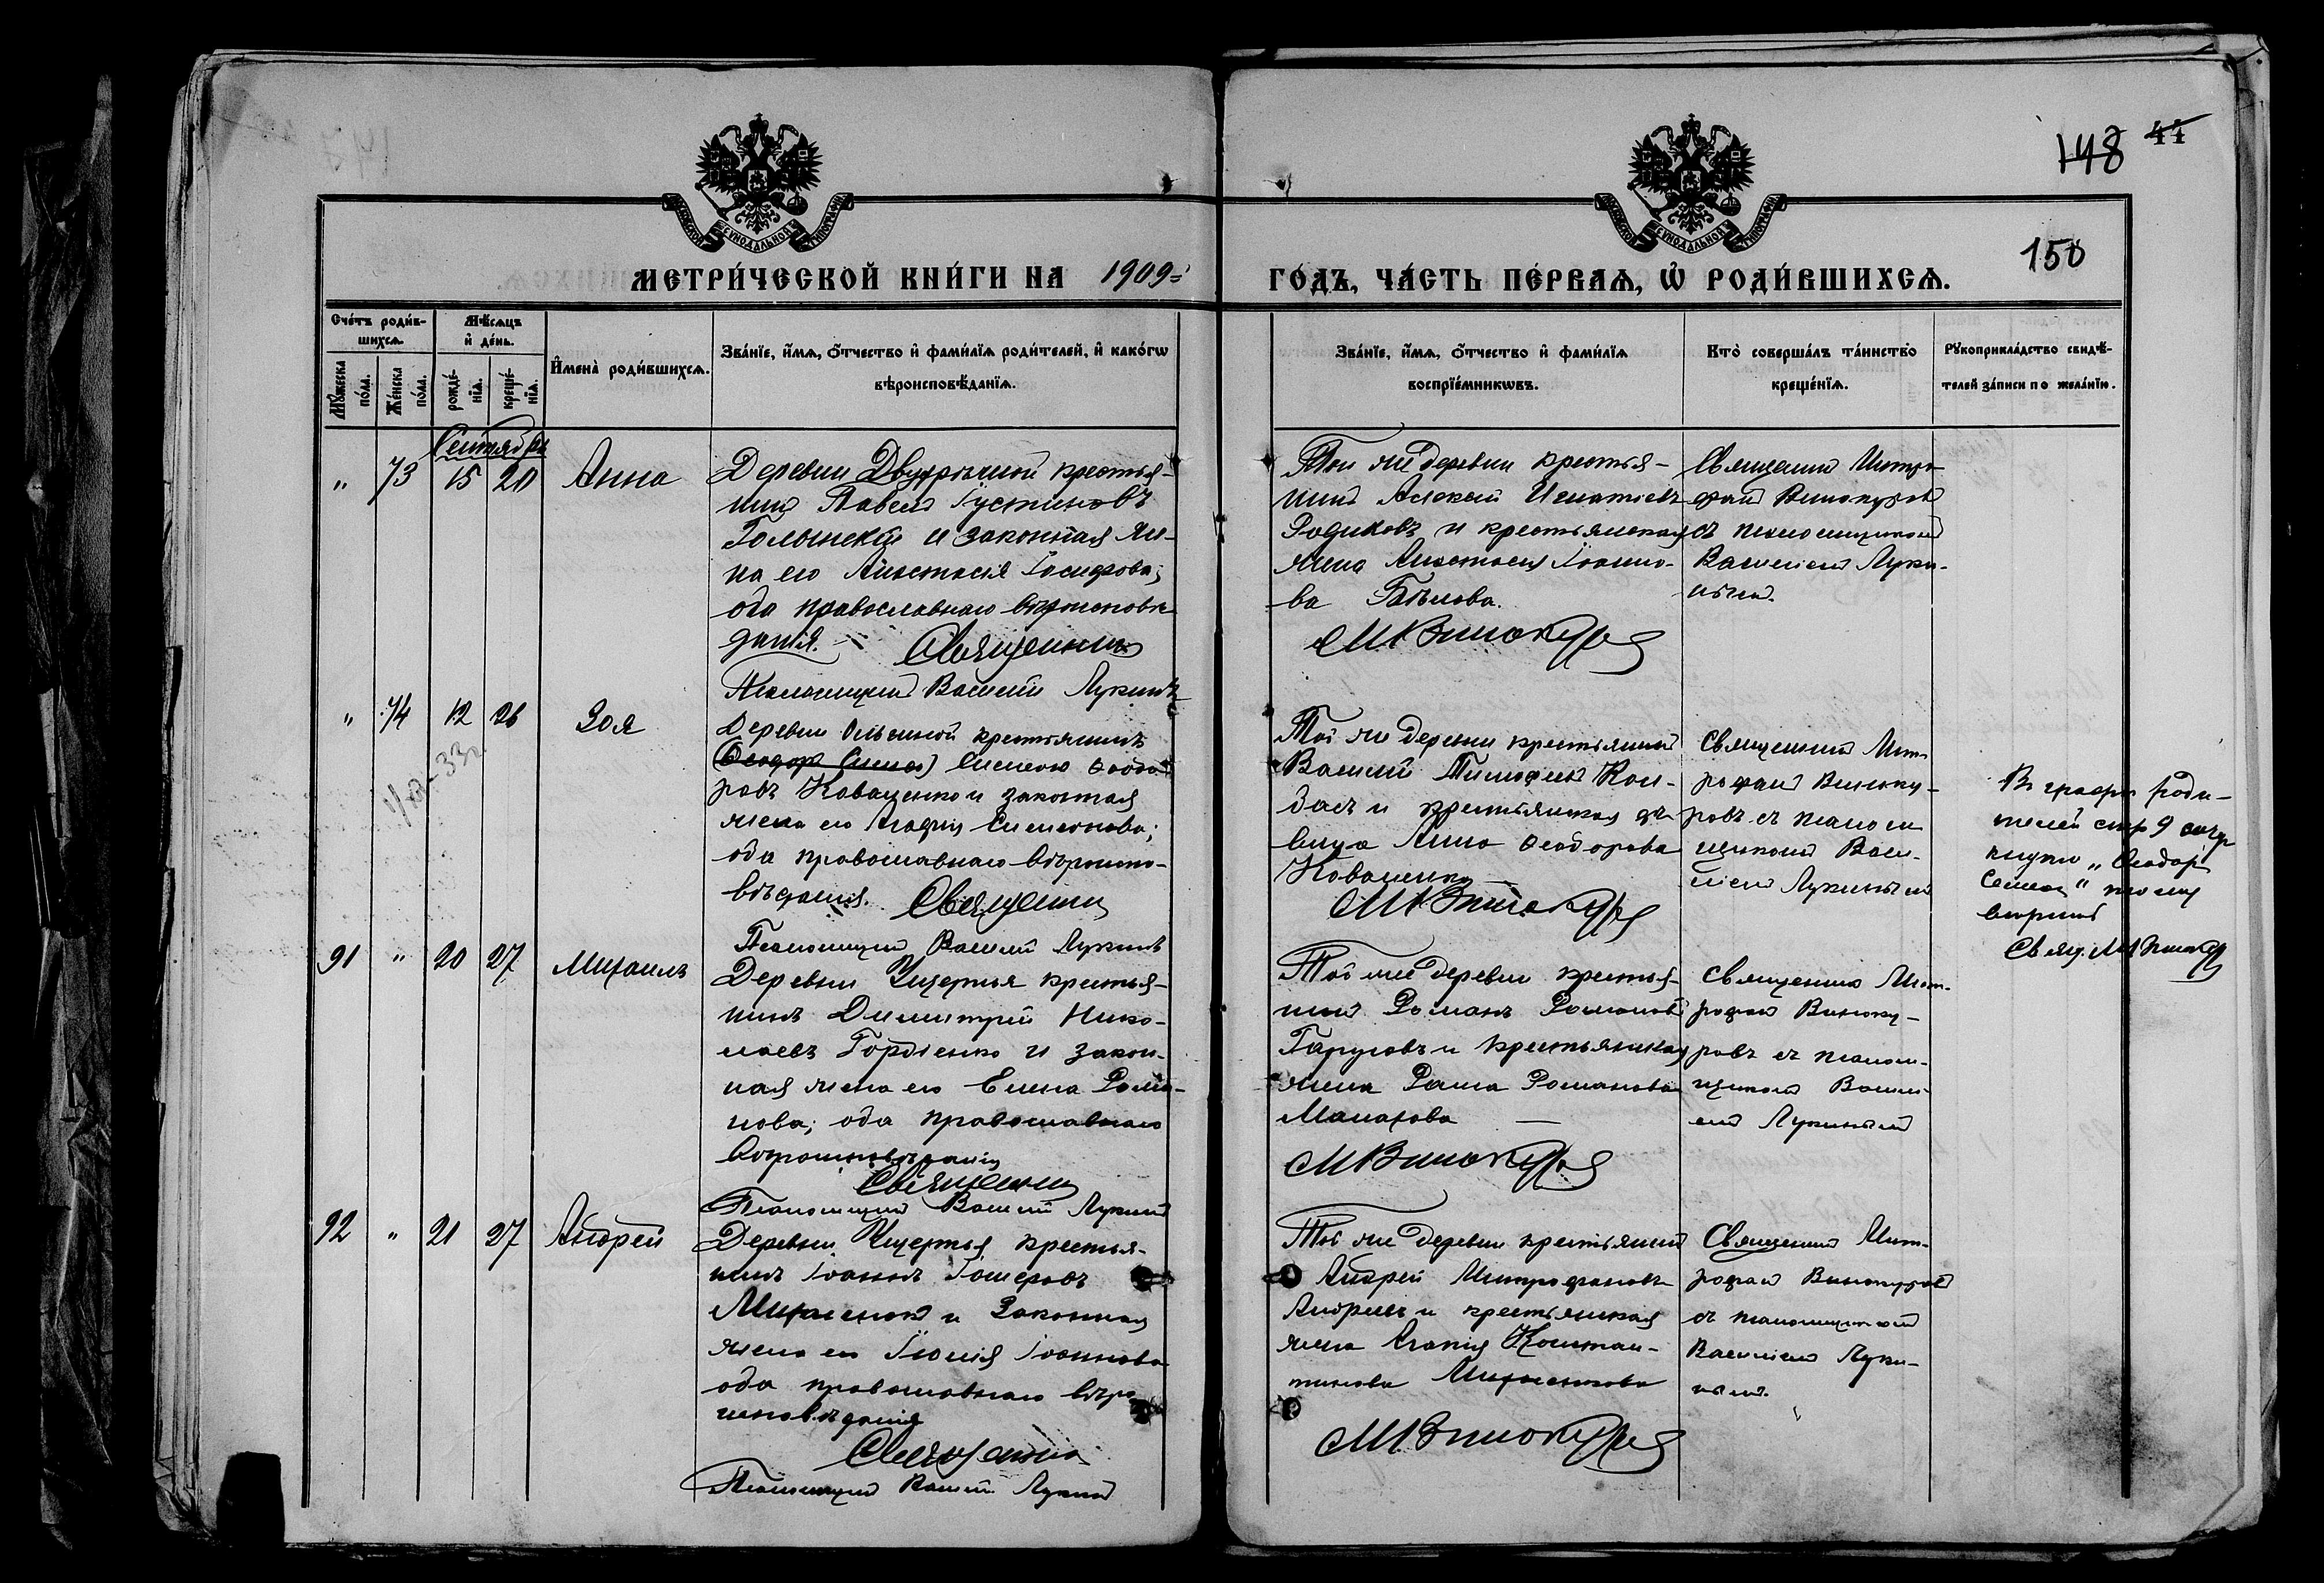 148 41
150
МЕТРИ́ЧЕСКОЙ КНИ́ГИ НА 1909
ГО́ДЪ, ЧА́СТЬ ПЕ́РВАѦ, Ѽ РОДИ́ВШИХСѦ.
Сче́тъ роди́в-
шихсѧ.
Мꙋ́жеска по́ла.
Же́нска по́ла.
Мѣ́сѧцъ и҆ де́нь.
рожде́-
нїѧ.
креще́-
нїѧ.
И҆мена̀ роди́вшихсѧ.
Зва́нїе, и҆́мѧ, ѻ҆́тчество и҆ фами́лїѧ роди́телей, и҆ како́гѡ
вѣроисповѣ́данїѧ.
Зва́нїе, и҆́мѧ, ѻ҆́тчество и҆ фами́лїѧ
воспрїе́мникѡвъ.
Кто̀ соверша́лъ та́инство
креще́нїѧ.
Рꙋкоприкла́дство свидѣ́-
телей за́писи по жела́нїю.
Сентября
" 73 15 20 Анна
Деревни крестья-
нинъ Павелъ Іустиновъ
и законная же-
на его Анастасія Іосифова;
оба православнаго вѣроисповѣ-
данія. Священникъ
Псаломщикъ Василій Лукинъ
Той же деревни крестья-
нинъ Алексѣй Игнатіевъ
Родиковъ и крестьянская
жена Анастасія Іоанно-
ва Бѣлова.
МВинокуровъ
Священникъ Митро-
фанъ Винокуровъ
съ псаломщикомъ
Василіемъ Луки-
нымъ.
" 74 12 26 Зоя
Деревни Ольгиной крестьянинъ
Ѳеодоръ Симеонъ Ѳеодо-
ровъ Коваленко и законная
жена его Симеонова;
оба православнаго вѣроиспо-
вѣданія. Священникъ
Псаломщикъ Василій Лукинъ
Той же деревни крестьянинъ
Василій Тимофеевъ
и крестьянская дѣ-
вица Анна Ѳеодорова
Коваленко
МВинокуровъ
Священникъ Мит-
рофанъ Виноку-
ровъ съ псалом-
щикомъ Васи-
ліемъ Лукинымъ
Въ графѣ роди-
телей стр 9
"Ѳеодоръ
вѣрить
Свящ. МВинокуровъ
91 " 20 27 Михаилъ
Деревни Ущерпья крестья-
нинъ Димитрій Нико-
лаевъ Гордіенко и закон-
ная жена его Елена Рома-
нова; оба православнаго
вѣроисповѣданія
Священникъ
Псаломщикъ Василій Лукинъ
Той же деревни крестья-
нинъ Романъ Романовъ
и крестьянская
жена Романова
Малахова
МВинокуровъ
Священникъ Мит-
рофанъ Виноку-
ровъ съ псалом-
щикомъ Васи-
ліемъ Лукинымъ
92 " 21 27 Андрей
Деревни Ущерпья крестья-
нинъ Іоаннъ
и законная
жена его Іулія Іоаннова
оба православнаго вѣро-
исповѣданія
Священникъ
Псаломщикъ Василій Лукинъ
Той же деревни крестьянинъ
Андрей Митрофановъ
и крестьянская
жена Констан-
тинова
МВинокуровъ
Священникъ Мит-
рофанъ Винокуровъ
съ псаломщикомъ
Василіемъ Луки-
нымъ.